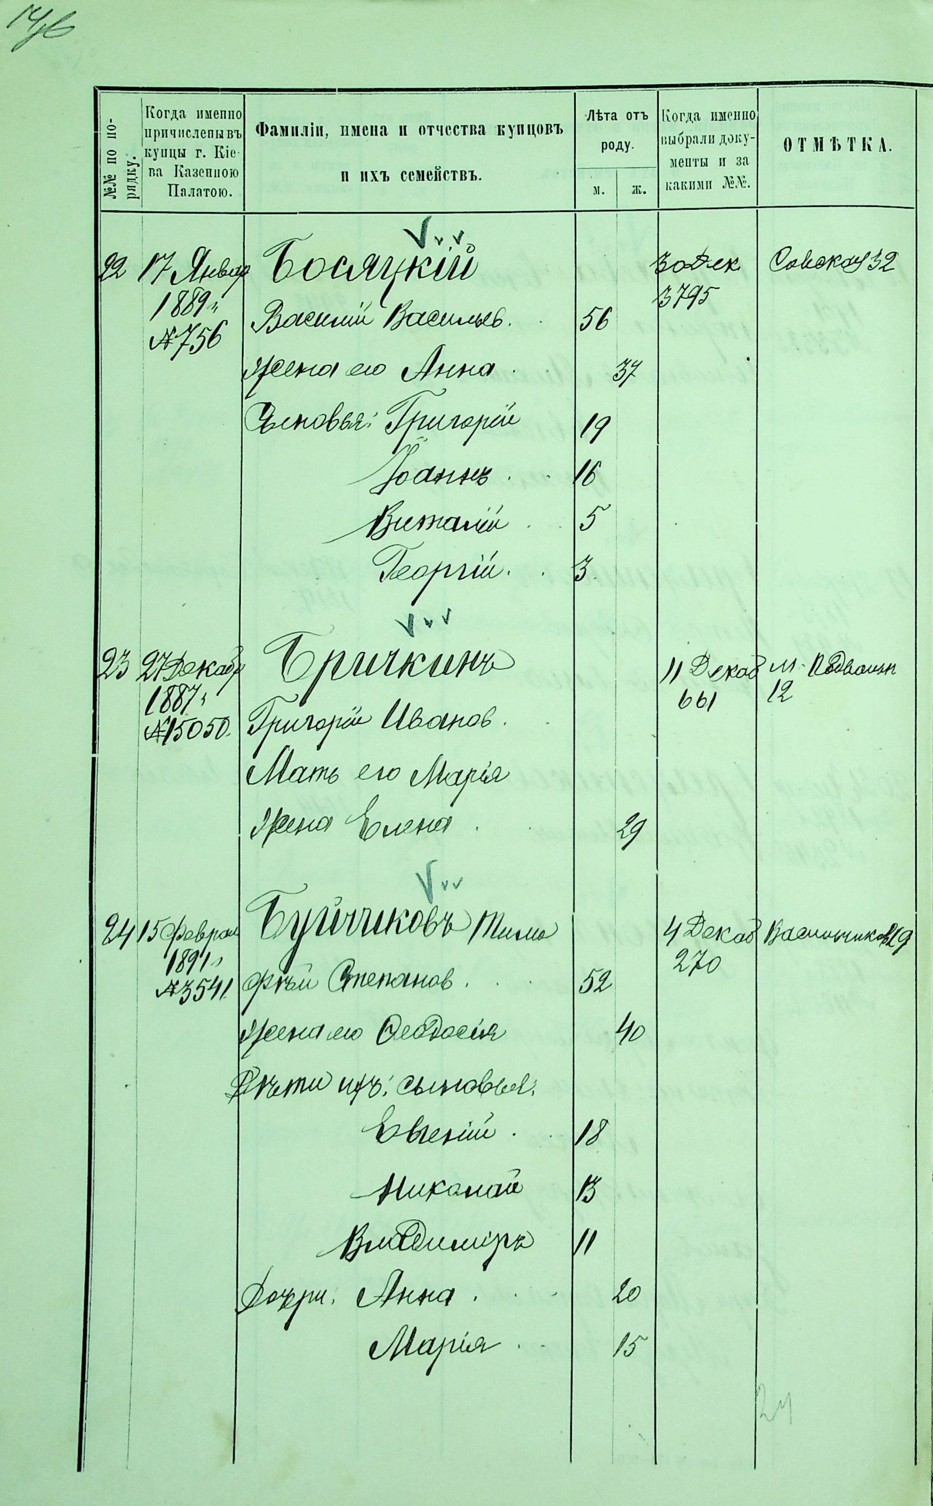 №№ по порядку.
Когда именно причислены въ купцы г. Кіева Казенною Палатою.
Фамиліи, имена и отчества купцовъ и ихъ семействъ.
Лѣта отъ роду.
м. ж.
Когда именно выбрали документы и за какими №№.
ОТМѢТКА.
22 17 Январ Босяцкій 30 Дек Совская 32
1889 г. 3795
№ 756 Василій Васильев. 56
Жена его Анна 37
Сыновья: Григорій 19
Іоаннъ 16
Виталій 5
Георгій 3
23 27 Декабр Бричкинъ 11 Декаб м.
1887 г. 661 12
№ 15050. Григорій Иванов.
Мать его Марія
Жена Елена 29
24 15 Феврал Буйчиковъ Тимо 4 Декаб Васильчиков 29
1891 г. 270
№ 3541 фѣй Степанов. 52
Жена его Ѳеодосія 40
Дѣти ихъ: сыновья:
Евгеній 18
Николай 13
Владиміръ 11
Дочери: Анна 20
Марія 15
24